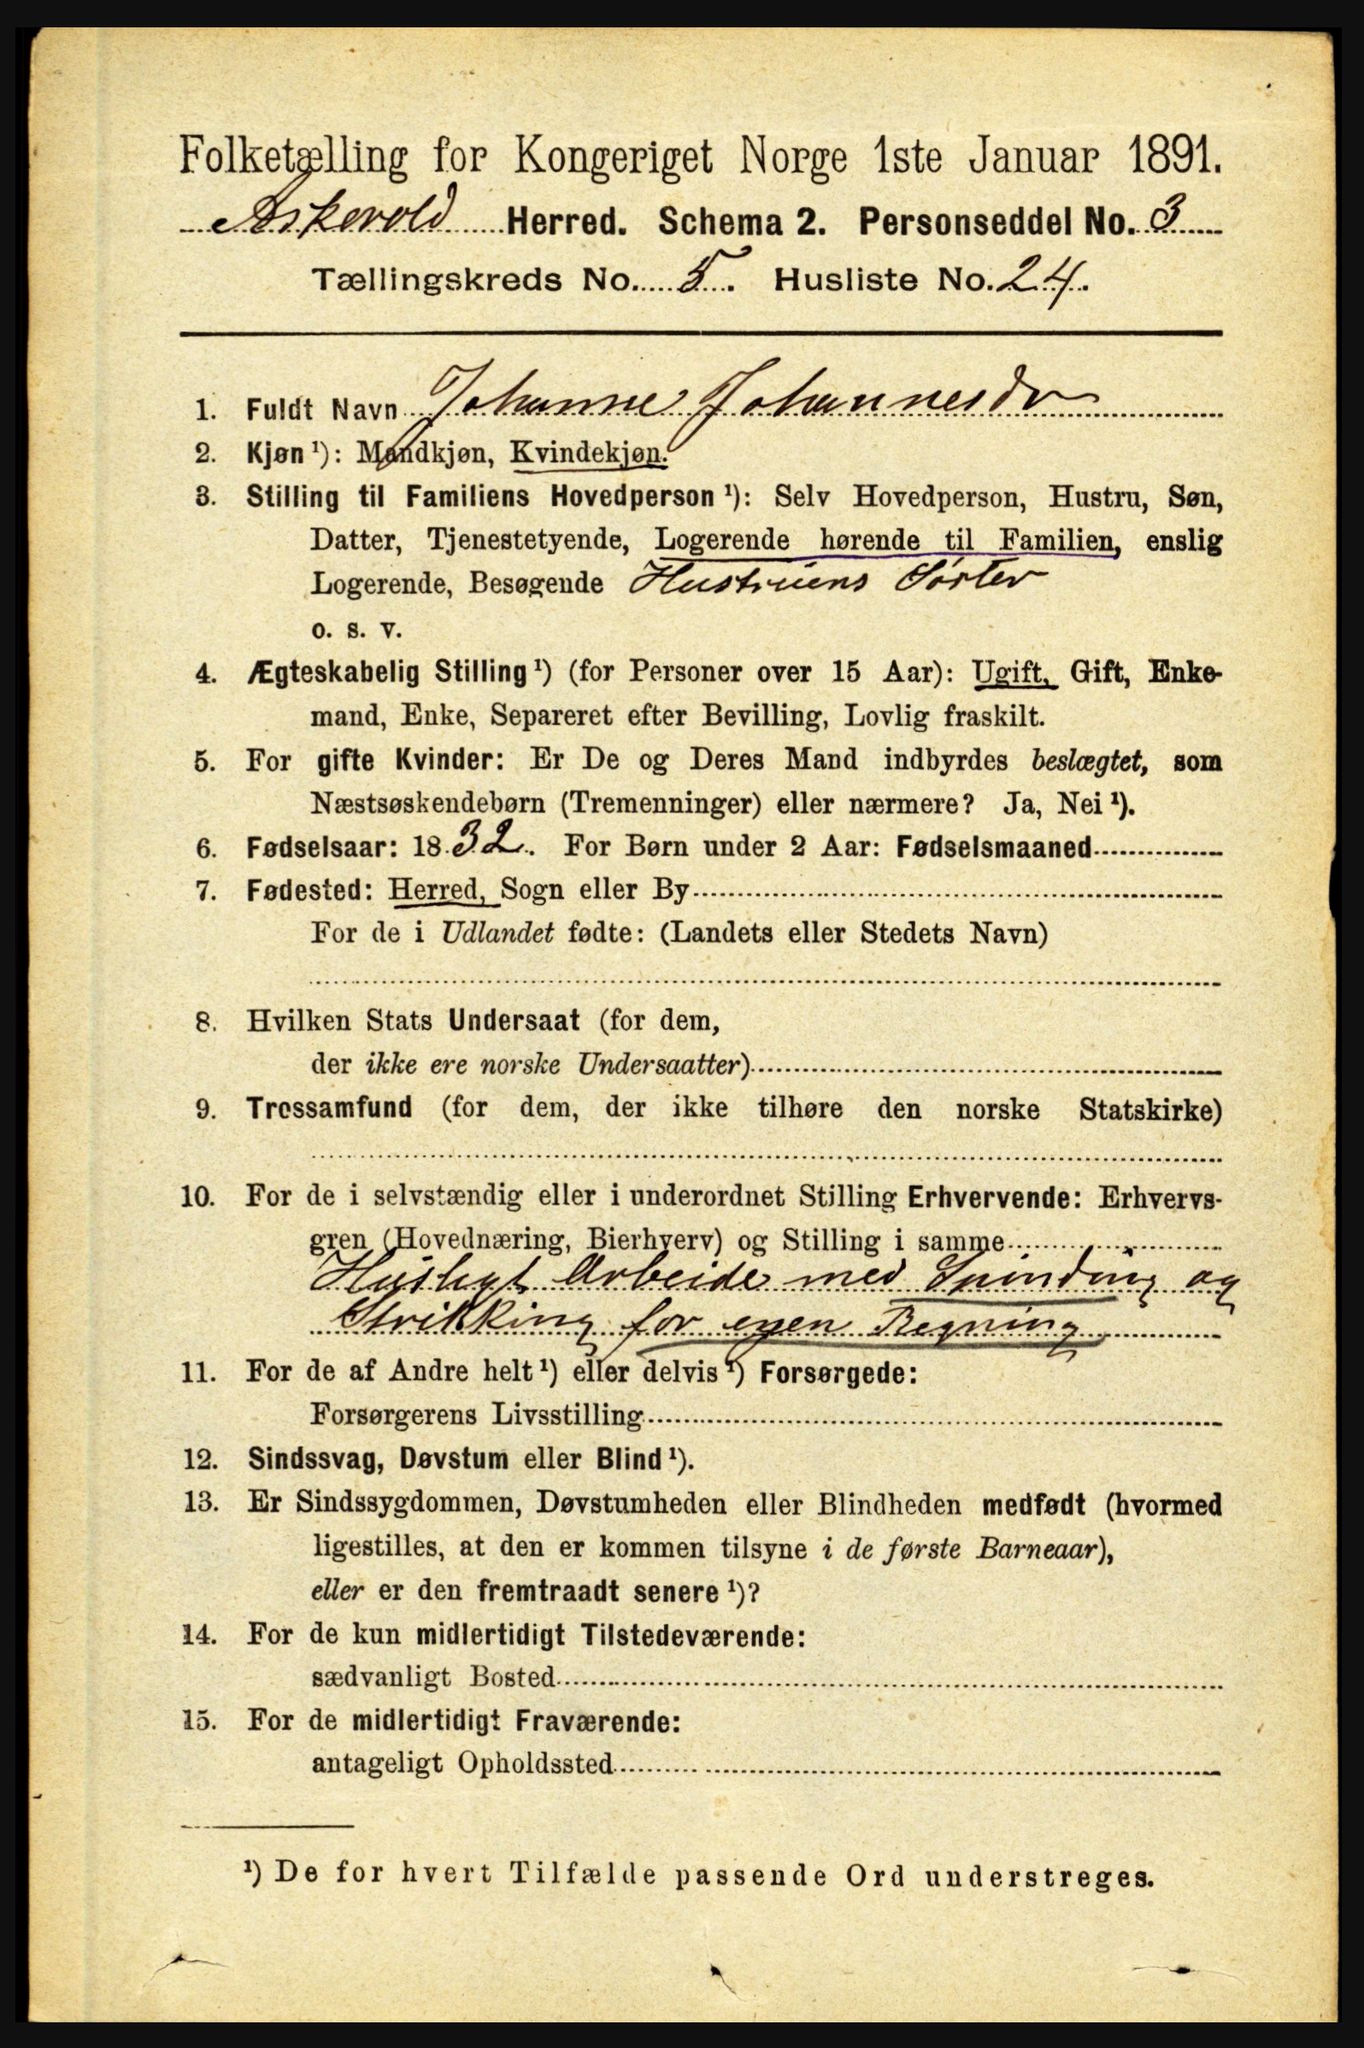 Folketælling for Kongeriget Norge 1ste Januar 1891.
Askevold Herred. Schema 2. Personseddel No. 3
Tællingskreds No. 5. Husliste No. 24.
1. Fuldt Navn Johanne Johannesdr
2. Kjøn ¹): Mandkjøn, Kvindekjøn.
3. Stilling til Familiens Hovedperson ¹): Selv Hovedperson, Hustru, Søn,
Datter, Tjenestetyende, Logerende hørende til Familien, enslig
Logerende, Besøgende Hustruens Søster
o. s. v.
4. Ægteskabelig Stilling ¹) (for Personer over 15 Aar): Ugift, Gift, Enke-
mand, Enke, Separeret efter Bevilling, Lovlig fraskilt.
5. For gifte Kvinder: Er De og Deres Mand indbyrdes beslægtet, som
Næstsøskendebørn (Tremenninger) eller nærmere? Ja, Nei ¹).
6. Fødselsaar: 1832. For Børn under 2 Aar: Fødselsmaaned
7. Fødested: Herred, Sogn eller By
For de i Udlandet fødte: (Landets eller Stedets Navn)
8. Hvilken Stats Undersaat (for dem,
der ikke ere norske Undersaatter)
9. Trossamfund (for dem, der ikke tilhøre den norske Statskirke)
10. For de i selvstændig eller i underordnet Stilling Erhvervende: Erhvervs-
gren (Hovednæring, Bierhverv) og Stilling i samme
Husligt Arbeide med Spinding og
Strikking for egen Regning
11. For de af Andre helt ¹) eller delvis ¹) Forsørgede:
Forsørgerens Livsstilling
12. Sindssvag, Døvstum eller Blind ¹).
13. Er Sindssygdommen, Døvstumheden eller Blindheden medfødt (hvormed
ligestilles, at den er kommen tilsyne i de første Barneaar),
eller er den fremtraadt senere ¹)?
14. For de kun midlertidigt Tilstedeværende:
sædvanligt Bosted
15. For de midlertidigt Fraværende:
antageligt Opholdssted
¹) De for hvert Tilfælde passende Ord understreges.